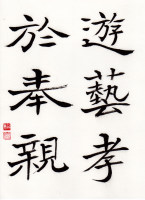 遊藝孝
於奉親